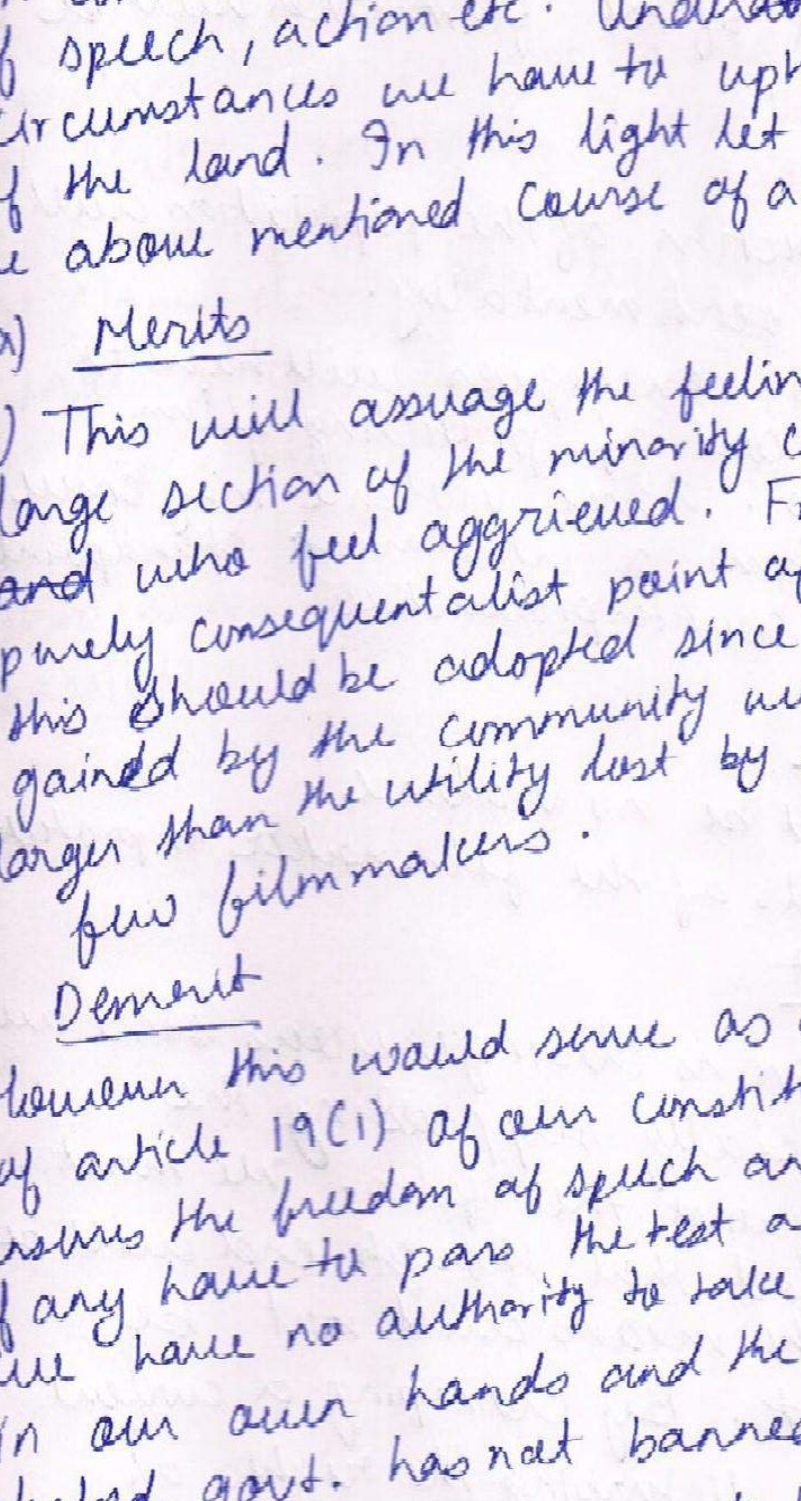 f speech, action etc.
circumstances we have to uph
f the land. In this light let
e above mentioned course of a
a) Merits
) This will assuage the feelin
large section of the minority c
and who feel aggrieved. Fr
purely consequentalist point of
this should be adopted since
gained by the community wi
larger than the utility lost by
few filmmakers.
Demerit
However this would serve as
of article 19(1) of our constit
ensures the freedom of speech an
f any have to pass the test a
we have no authority to take
in our own hands and the
govt. has not banned